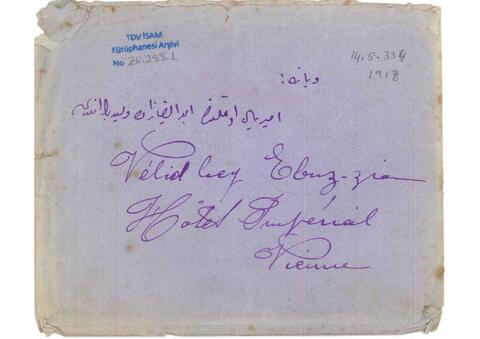 TDV İSAM
Kütüphanesi Arşivi
No 26.288.1
14.5.334
1918
ويانه:
امپريال اوتلنده ابوالضيازاده وليد بك افندى‌يه
Vélid bey Ebuz-zia
Hôtel Impérial
Vienne